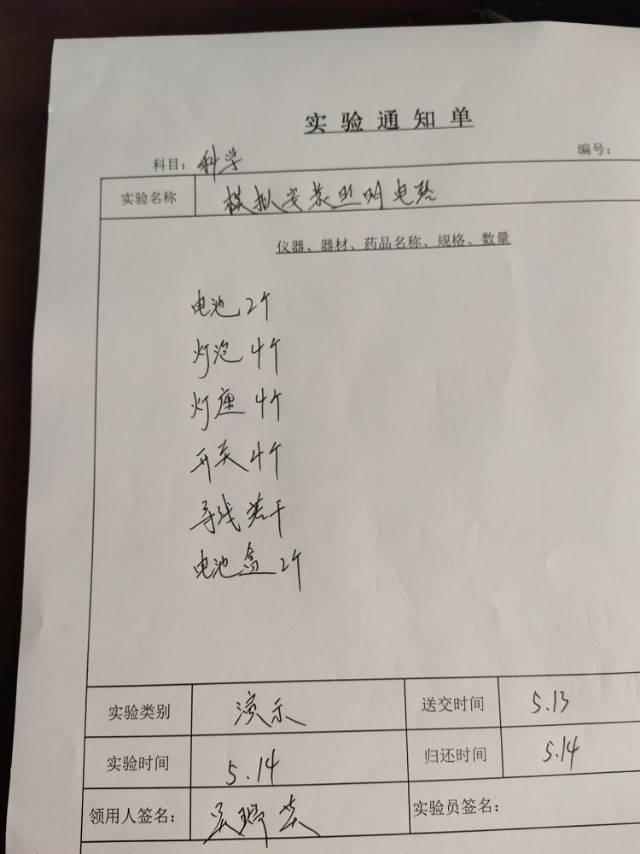 实验通知单
科目：科学 编号：
实验名称 模拟安装照明电路
仪器、器材、药品名称、规格、数量
电池2个
灯泡4个
灯座4个
开关4个
导线若干
电池盒2个
实验类别 演示 送交时间 5.13
实验时间 5.14 归还时间 5.14
领用人签名： 实验员签名：